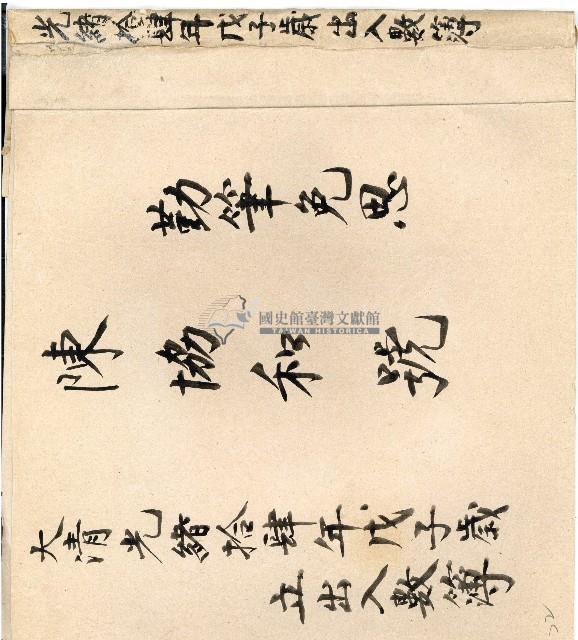 光緒拾肆年戊子歲出入數簿
勤筆免思
陳協和號
大清光緒拾肆年戊子歲
立出入數簿
國史館臺灣文獻館
TAIWAN HISTORICA